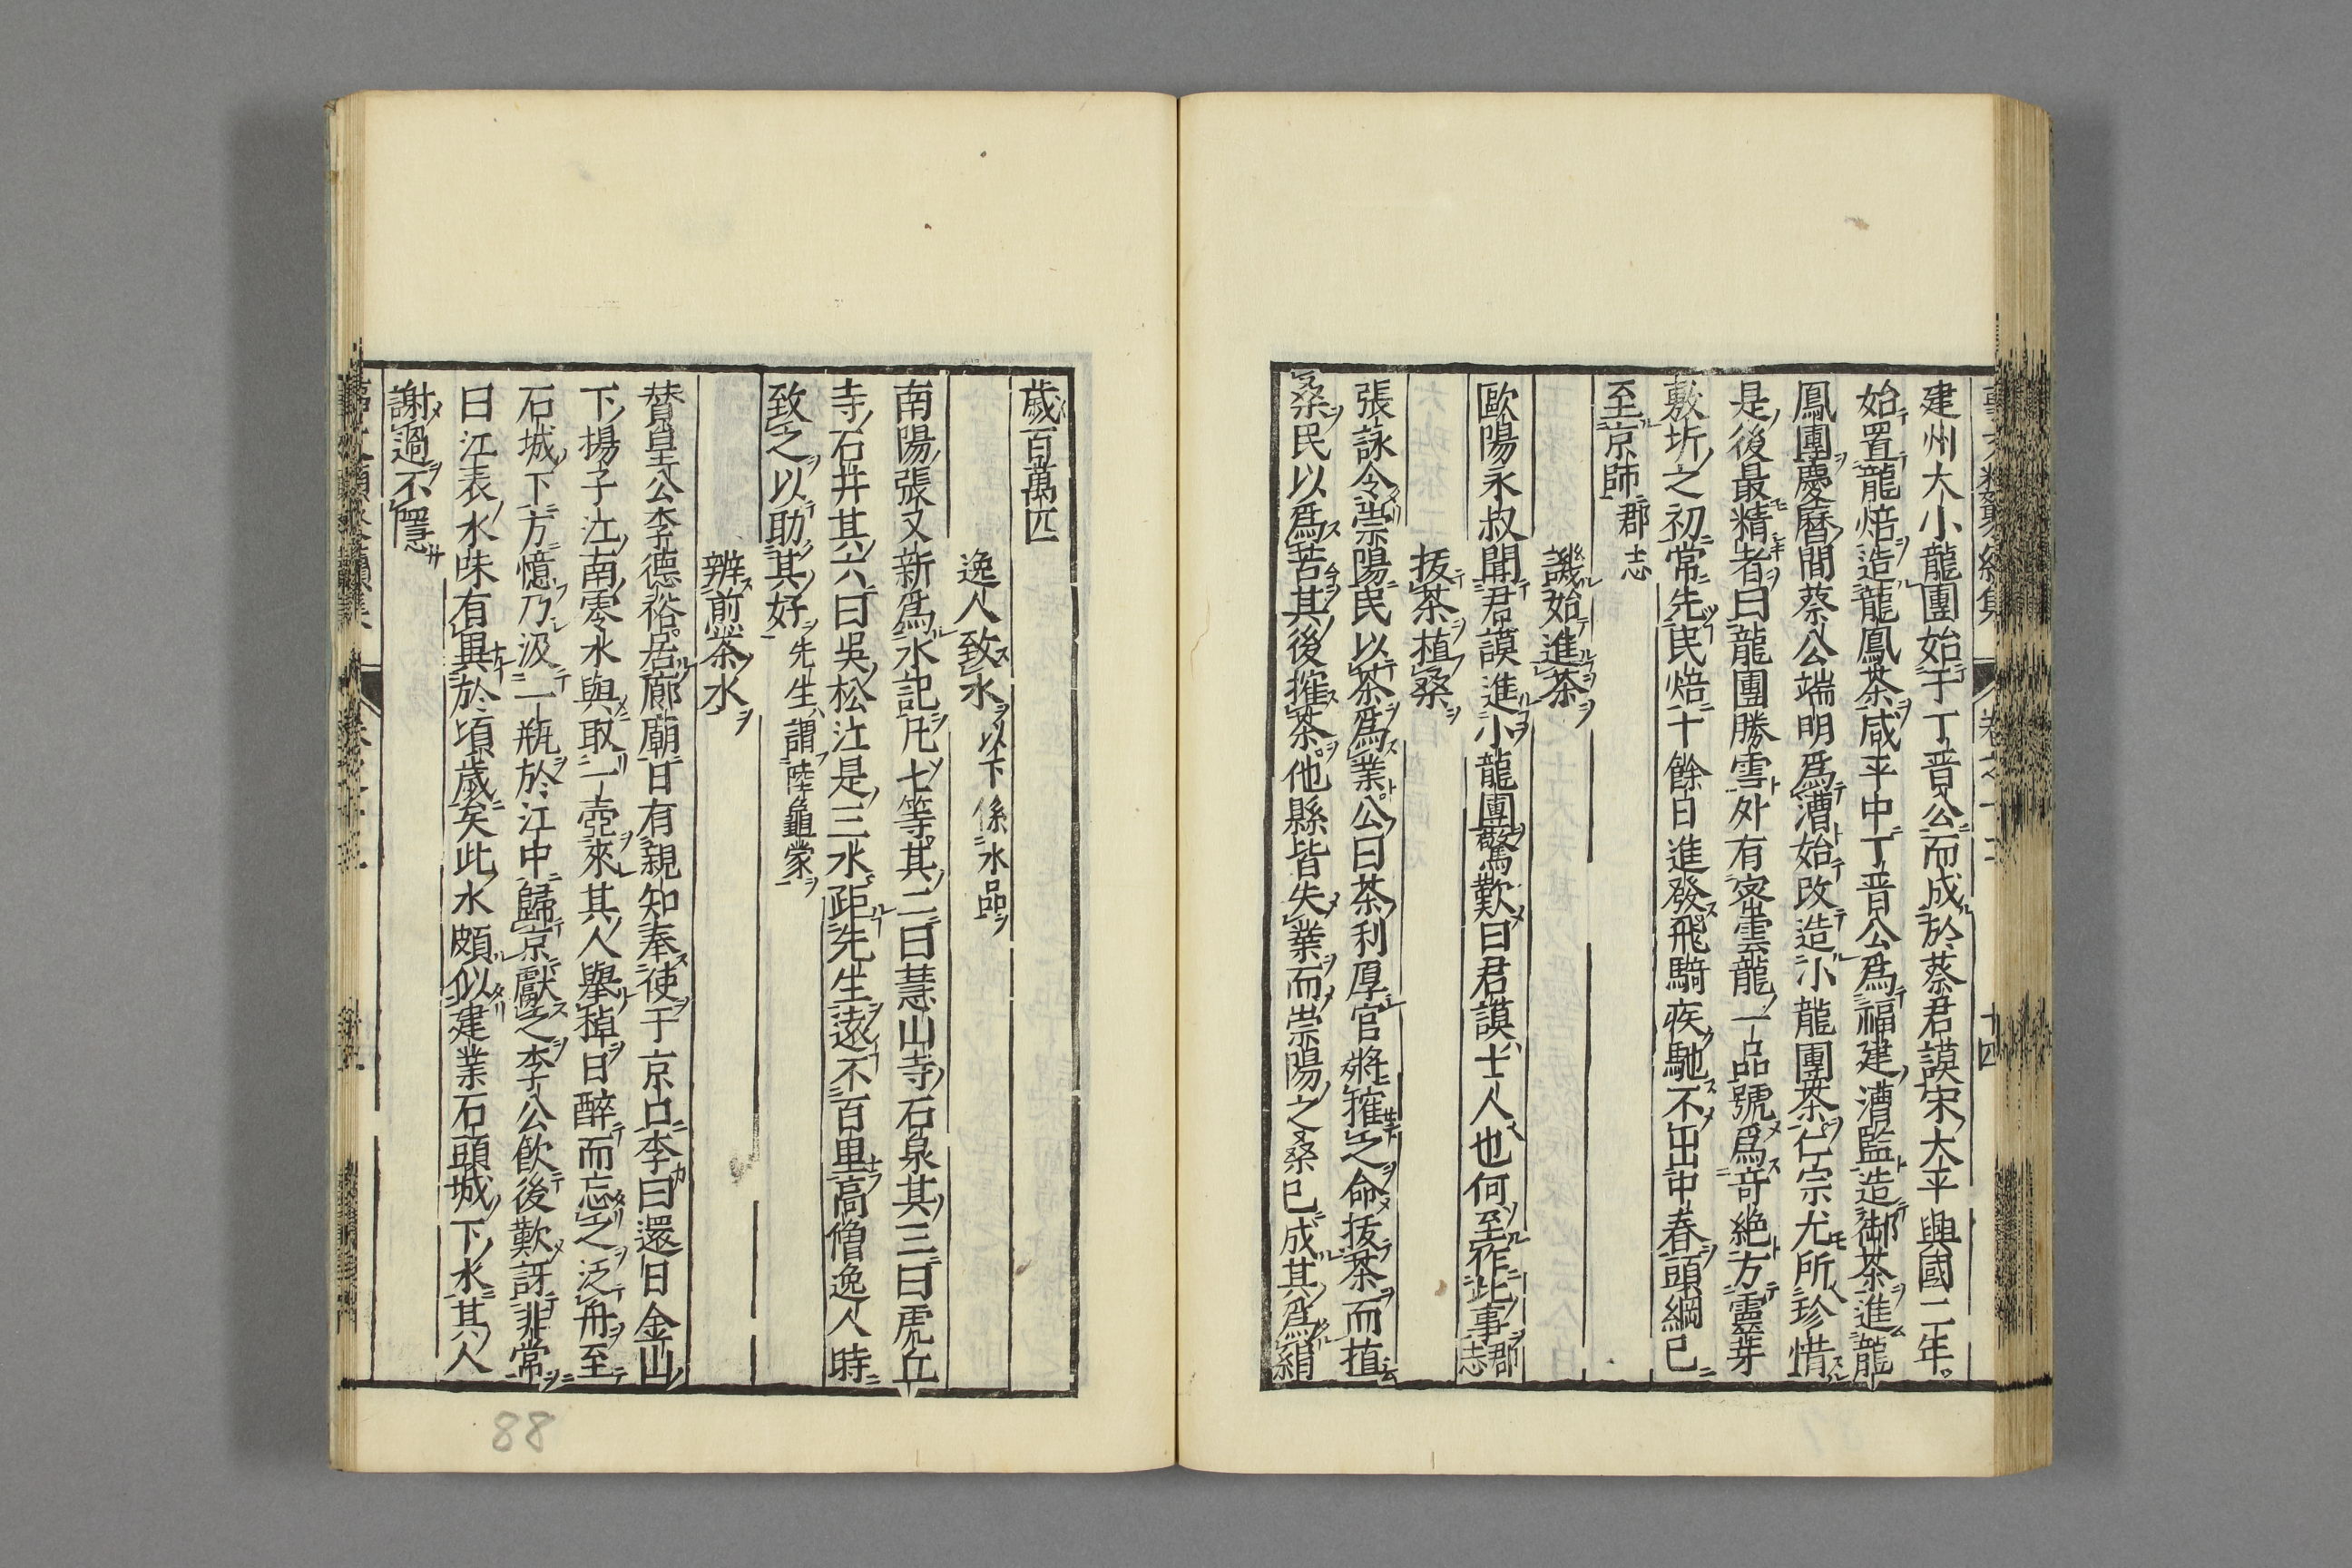 建州大小龍團始于丁晋公而成於蔡君謨宋大平興國二年
始置龍焙造龍鳳茶咸平中丁晋公爲福建漕監造御茶進龍
鳳團慶曆間蔡公端明爲漕始改造小龍團茶仁宗尤所珍惜
是後最精者曰龍團勝雪外有密雲龍一品號爲奇絶方靈芽
敷坼之初常先民焙十餘日進發飛騎疾馳不出中春頭綱已
至京師郡志
譏始進茶
歐陽永叔聞君謨進小龍團驚歎曰君謨士人也何至作此事郡志
抜茶植桒
張詠令崇陽民以茶爲業公曰茶利厚官將搉之命抜茶而植
桒民以爲苦其後搉茶他縣皆失業而崇陽之桒已成其爲絹
歲百萬匹
逸人致水以下係水品
南陽張又新爲水記凡七等其二曰慧山寺石泉其三曰虎丘
寺石井其六曰吳松江是三水距先生遠不百里高僧逸人時
致之以助其好先生謂陸龜蒙
辨煎茶水
賛皇公李德裕居廊廟日有親知奉使于京口李曰還日金山
下揚子江南零水與取一壺來其人舉棹日醉而忘之泛舟至
石城下方憶乃汲一瓶於江中歸京獻之李公飲後歎訝非常
曰江表水味有異於頃歲矣此水頗似建業石頭城下水其人
謝過不隱
88